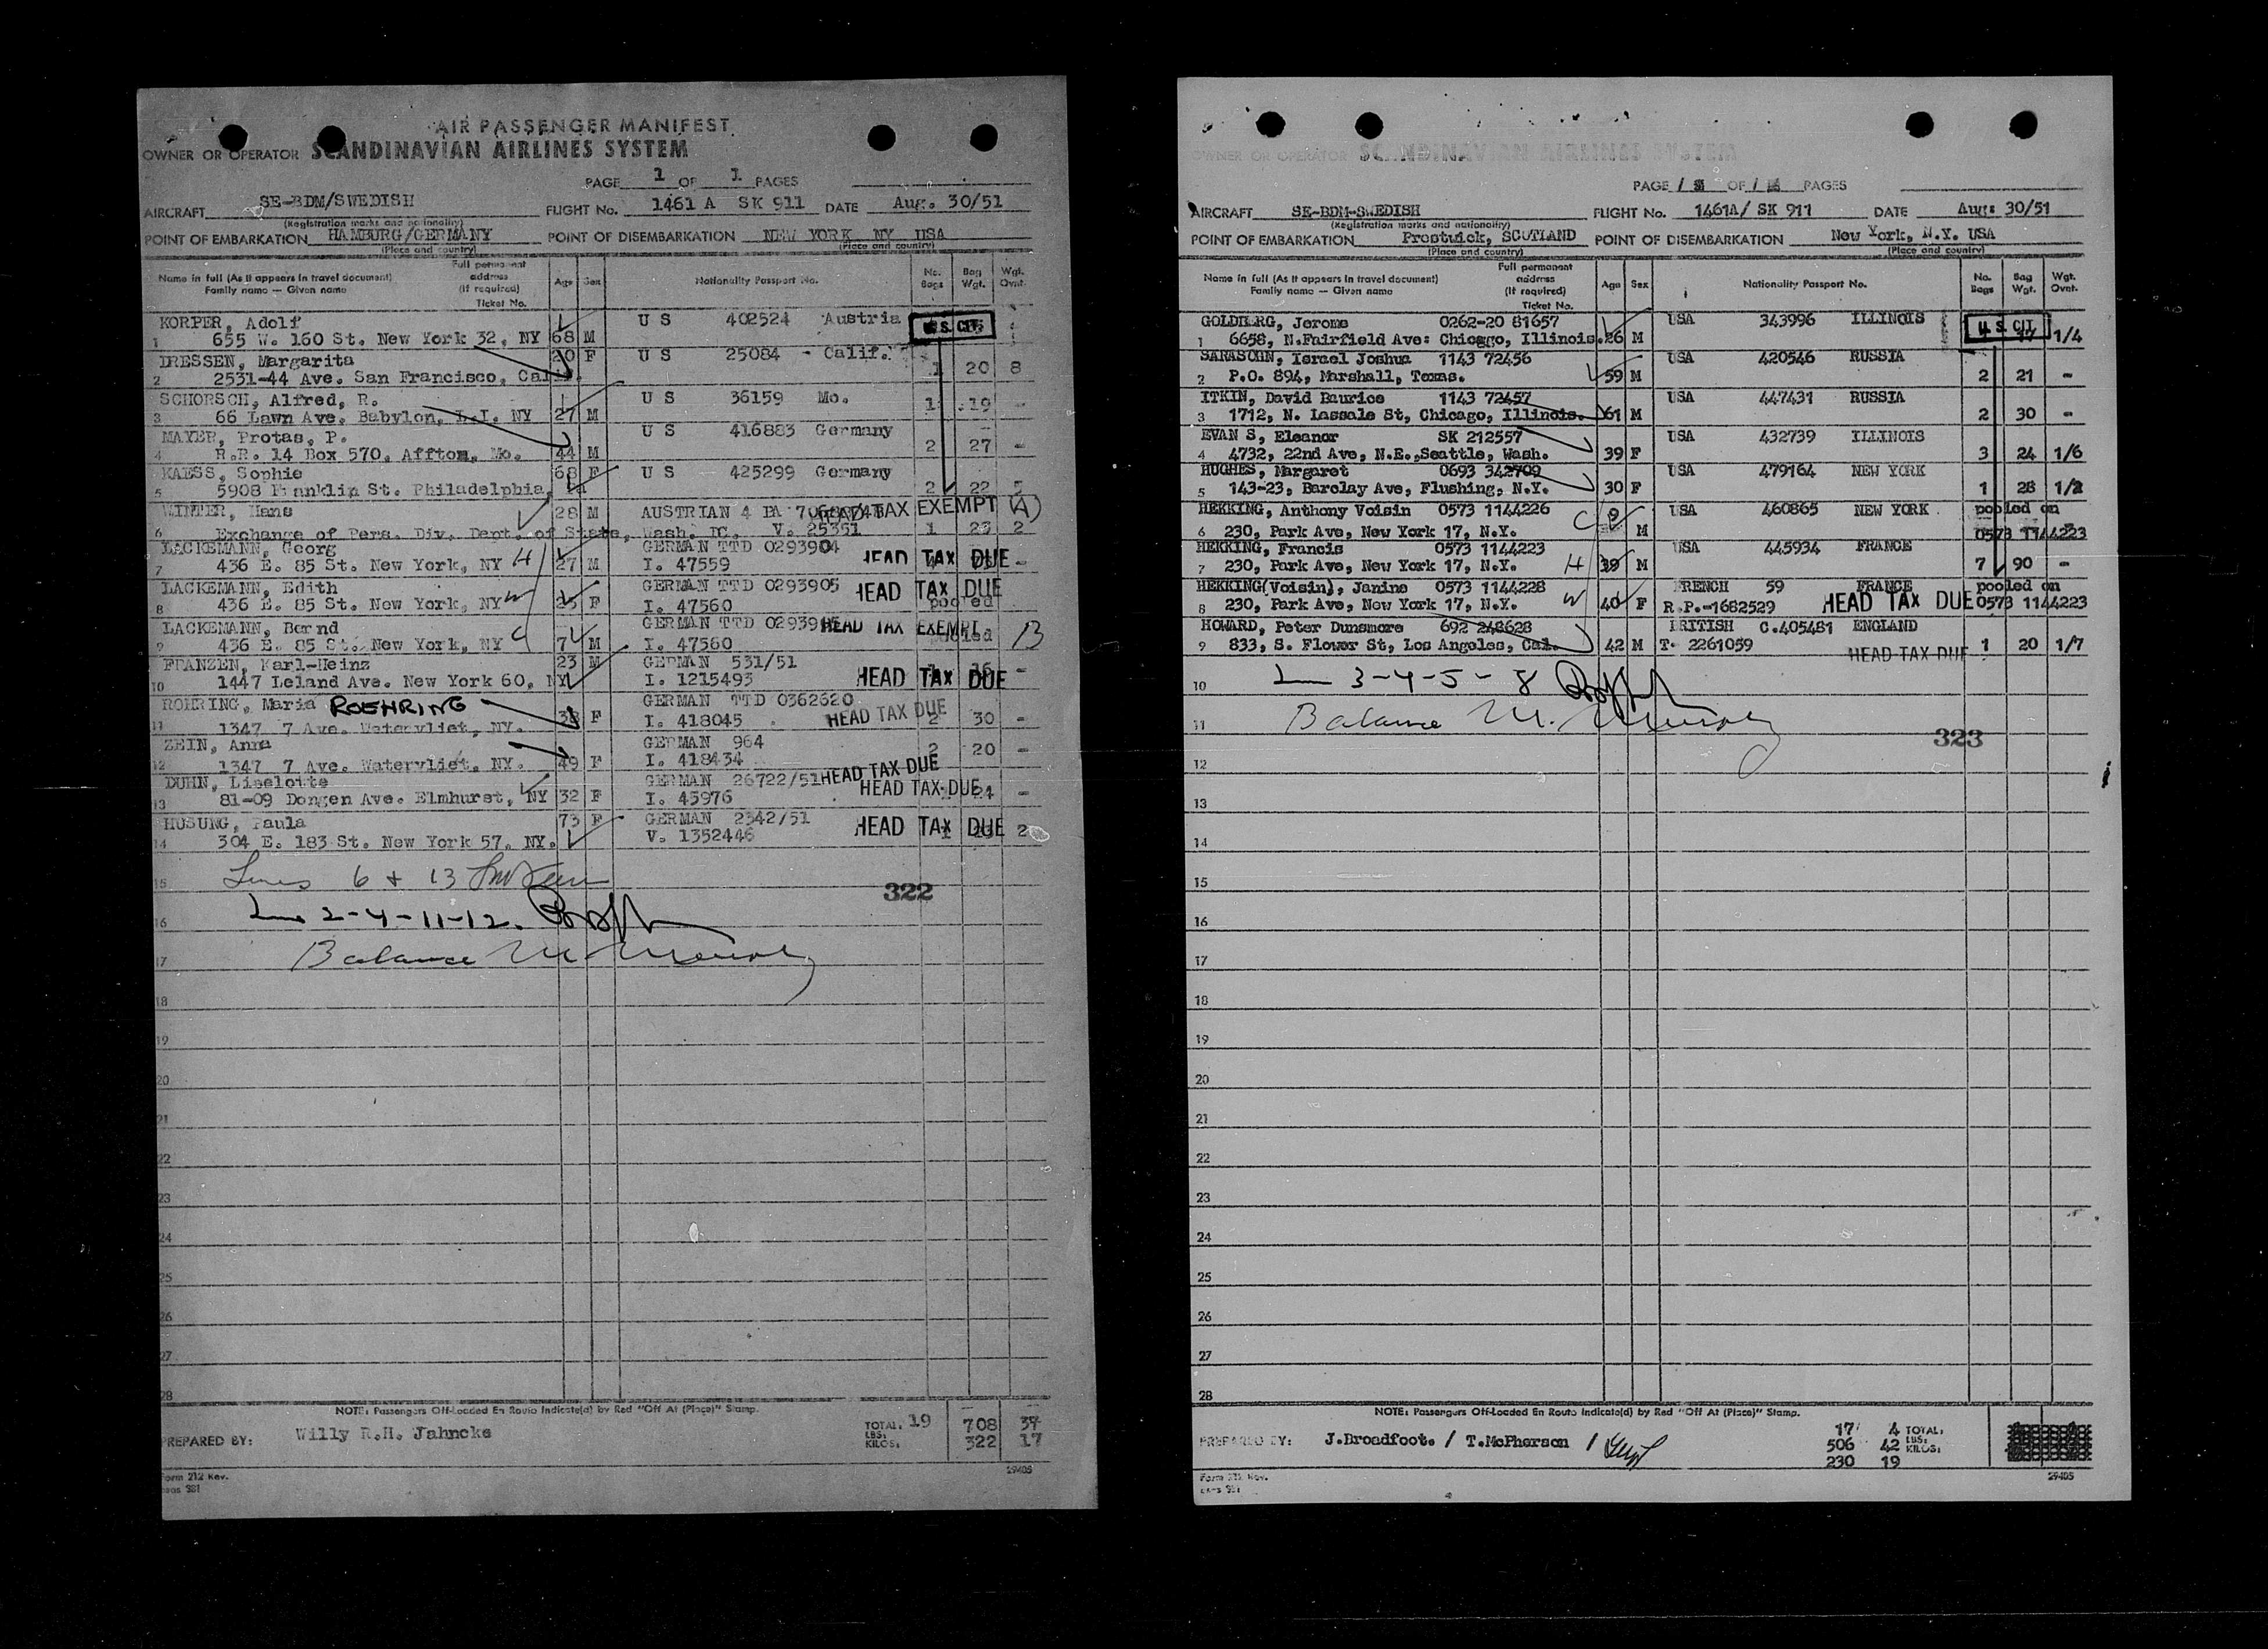 AIR PASSENGER MANIFEST
OWNER OR OPERATOR SCANDINAVIAN AIRLINES SYSTEM
PAGE 1 OF 1 PAGES
AIRCRAFT SE-BDM/SWEDISH FLIGHT No. 1461 A SK 911 DATE Aug. 30/51
(Registration marks and nationality)
POINT OF EMBARKATION HAMBURG/GERMANY POINT OF DISEMBARKATION NEW YORK NY USA
(Place and country) (Place and country)
Name in full (As it appears in travel document) Full permanent address (If required) Age Sex Nationality Passport No. No. Bags Bag Wgt. Wgt. Ovnt.
Family name — Given name Ticket No.
KORPER, Adolf U S 402524 Austria U.S. CIT.
1 655 W. 160 St. New York 32, NY 68 M
DRESSEN, Margarita 20 F U S 25084 - Calif.
2 2531-44 Ave. San Francisco, Cal 1 20 8
SCHORSCH, Alfred, R. U S 36159 Mo.
3 66 Lawn Ave. Babylon, L.I. NY 27 M 1 19 -
MAYER, Protas, P. U S 416883 Germany
4 R.R. 14 Box 570, Affton, Mo. 44 M 2 27 -
KAESS, Sophie 68 F U S 425299 Germany
5 5908 Franklin St. Philadelphia, 2 22 5
WINTER, Hans 28 M AUSTRIAN 4 PA HEAD TAX EXEMPT (A)
6 Exchange of Pers. Div. Dept. of State, Wash. DC. V. 25351 1 23 2
LACKEMANN, Georg GERMAN TTD 0293904
7 436 E. 85 St. New York, NY H 27 M I. 47559 HEAD TAX DUE -
LACKEMANN, Edith GERMAN TTD 0293905 HEAD TAX DUE
8 436 E. 85 St. New York, NY W 25 F I. 47560 pooled
LACKEMANN, Bernd GERMAN TTD 0293905 HEAD TAX EXEMPT
9 436 E. 85 St. New York, NY C 7 M I. 47560 pooled 13
FRANZEN, Karl-Heinz 23 M GERMAN 531/51
10 1447 Leland Ave. New York 60, NY I. 1215493 HEAD TAX DUE -
ROHRING, Maria ROEHRING GERMAN TTD 0362620
11 1347 7 Ave. Watervliet, NY. 38 F I. 418045 HEAD TAX DUE 2 30 -
ZEIN, Anna GERMAN 964 2 20 -
12 1347 7 Ave. Watervliet, NY. 49 F I. 418434 HEAD TAX DUE
DUHN, Liselotte GERMAN 26722/51
13 81-09 Dongen Ave. Elmhurst, NY 32 F I. 45976 HEAD TAX DUE 24 -
HUSUNG, Paula 73 F GERMAN 2342/51
14 304 E. 183 St. New York 57, NY. V. 1352446 HEAD TAX DUE 1 2
15 Lines 6 + 13
322
16 L 2-4-11-12.
17 Balance M.
18
19
20
21
22
23
24
25
26
27
28
NOTE: Passengers Off-Loaded En Route Indicate(d) by Red "Off At (Place)" Stamp.
PREPARED BY: Willy R.H. Jahncke
TOTAL: 19
LBS: 708 37
KILOS: 322 17
Form 212 Rev.
29405
OWNER OR OPERATOR SCANDINAVIAN AIRLINES SYSTEM
PAGE 1 OF 1 PAGES
AIRCRAFT SE-BDM-SWEDISH FLIGHT No. 1461A/ SK 911 DATE Aug: 30/51
(Registration marks and nationality)
POINT OF EMBARKATION Prestwick, SCOTLAND POINT OF DISEMBARKATION New York, N.Y. USA
(Place and country) (Place and country)
Name in full (As it appears in travel document) Full permanent address (If required) Age Sex Nationality Passport No. No. Bags Bag Wgt. Wgt. Ovnt.
Family name — Given name Ticket No.
GOLDBERG, Jerome 0262-20 81657 USA 343996 ILLINOIS U.S. CIT.
1 6658, N.Fairfield Ave: Chicago, Illinois. 26 M 17 1/4
SARASOHN, Israel Joshua 1143 72456 USA 420546 RUSSIA
2 P.O. 894, Marshall, Texas. 59 M 2 21 -
ITKIN, David Baurice 1143 72457 USA 447431 RUSSIA
3 1712, N. Lassale St, Chicago, Illinois. 61 M 2 30 -
EVAN S, Eleanor SK 212557 USA 432739 ILLINOIS
4 4732, 22nd Ave, N.E.,Seattle, Wash. 39 F 3 24 1/6
HUGHES, Margaret 0693 342709 USA 479164 NEW YORK
5 143-23, Barclay Ave, Flushing, N.Y. 30 F 1 28 1/2
HEKKING, Anthony Voisin 0573 1144226 C USA 460865 NEW YORK pooled on
6 230, Park Ave, New York 17, N.Y. M 0573 1144223
HEKKING, Francis 0573 1144223 USA 445934 FRANCE
7 230, Park Ave, New York 17, N.Y. H 39 M 7 90 -
HEKKING(Voisin), Janine 0573 1144228 FRENCH 59 FRANCE pooled on
8 230, Park Ave, New York 17, N.Y. W 40 F R.P.-1682529 HEAD TAX DUE 0573 1144223
HOWARD, Peter Dunsmore 692 248628 BRITISH C.405481 ENGLAND
9 833, S. Flower St, Los Angeles, Cal. 42 M T. 2261059 HEAD TAX DUE 1 20 1/7
10 L 3-4-5-8
11 Balance M.
323
12
13
14
15
16
17
18
19
20
21
22
23
24
25
26
27
28
NOTE: Passengers Off-Loaded En Route Indicate(d) by Red "Off At (Place)" Stamp.
PREPARED BY: J.Broadfoot. / T.McPherson /
17 4 TOTAL:
506 42 LBS:
230 19 KILOS:
Form 212 Rev.
29405